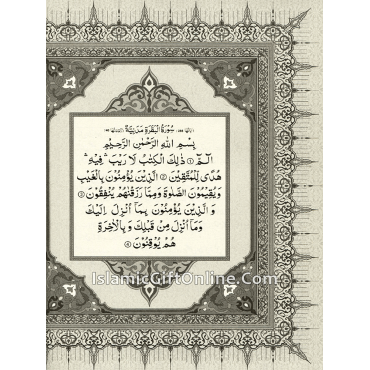 سُورَةُ الْبَقَرَةِ مَدَنِيَّةٌ
بِسْمِ اللّٰهِ الرَّحْمٰنِ الرَّحِيْمِ
الٓمّٓ ۝١ ذٰلِكَ الْكِتٰبُ لَا رَيْبَ ۛ فِيْهِ ۛ
هُدًى لِّلْمُتَّقِيْنَ ۝٢ الَّذِيْنَ يُؤْمِنُوْنَ بِالْغَيْبِ
وَيُقِيْمُوْنَ الصَّلٰوةَ وَمِمَّا رَزَقْنٰهُمْ يُنْفِقُوْنَ ۝٣
وَ الَّذِيْنَ يُؤْمِنُوْنَ بِمَآ اُنْزِلَ اِلَيْكَ
وَمَآ اُنْزِلَ مِنْ قَبْلِكَ وَ بِالْاٰخِرَةِ
هُمْ يُوْقِنُوْنَ ۝٤
IslamicGiftOnline.Com